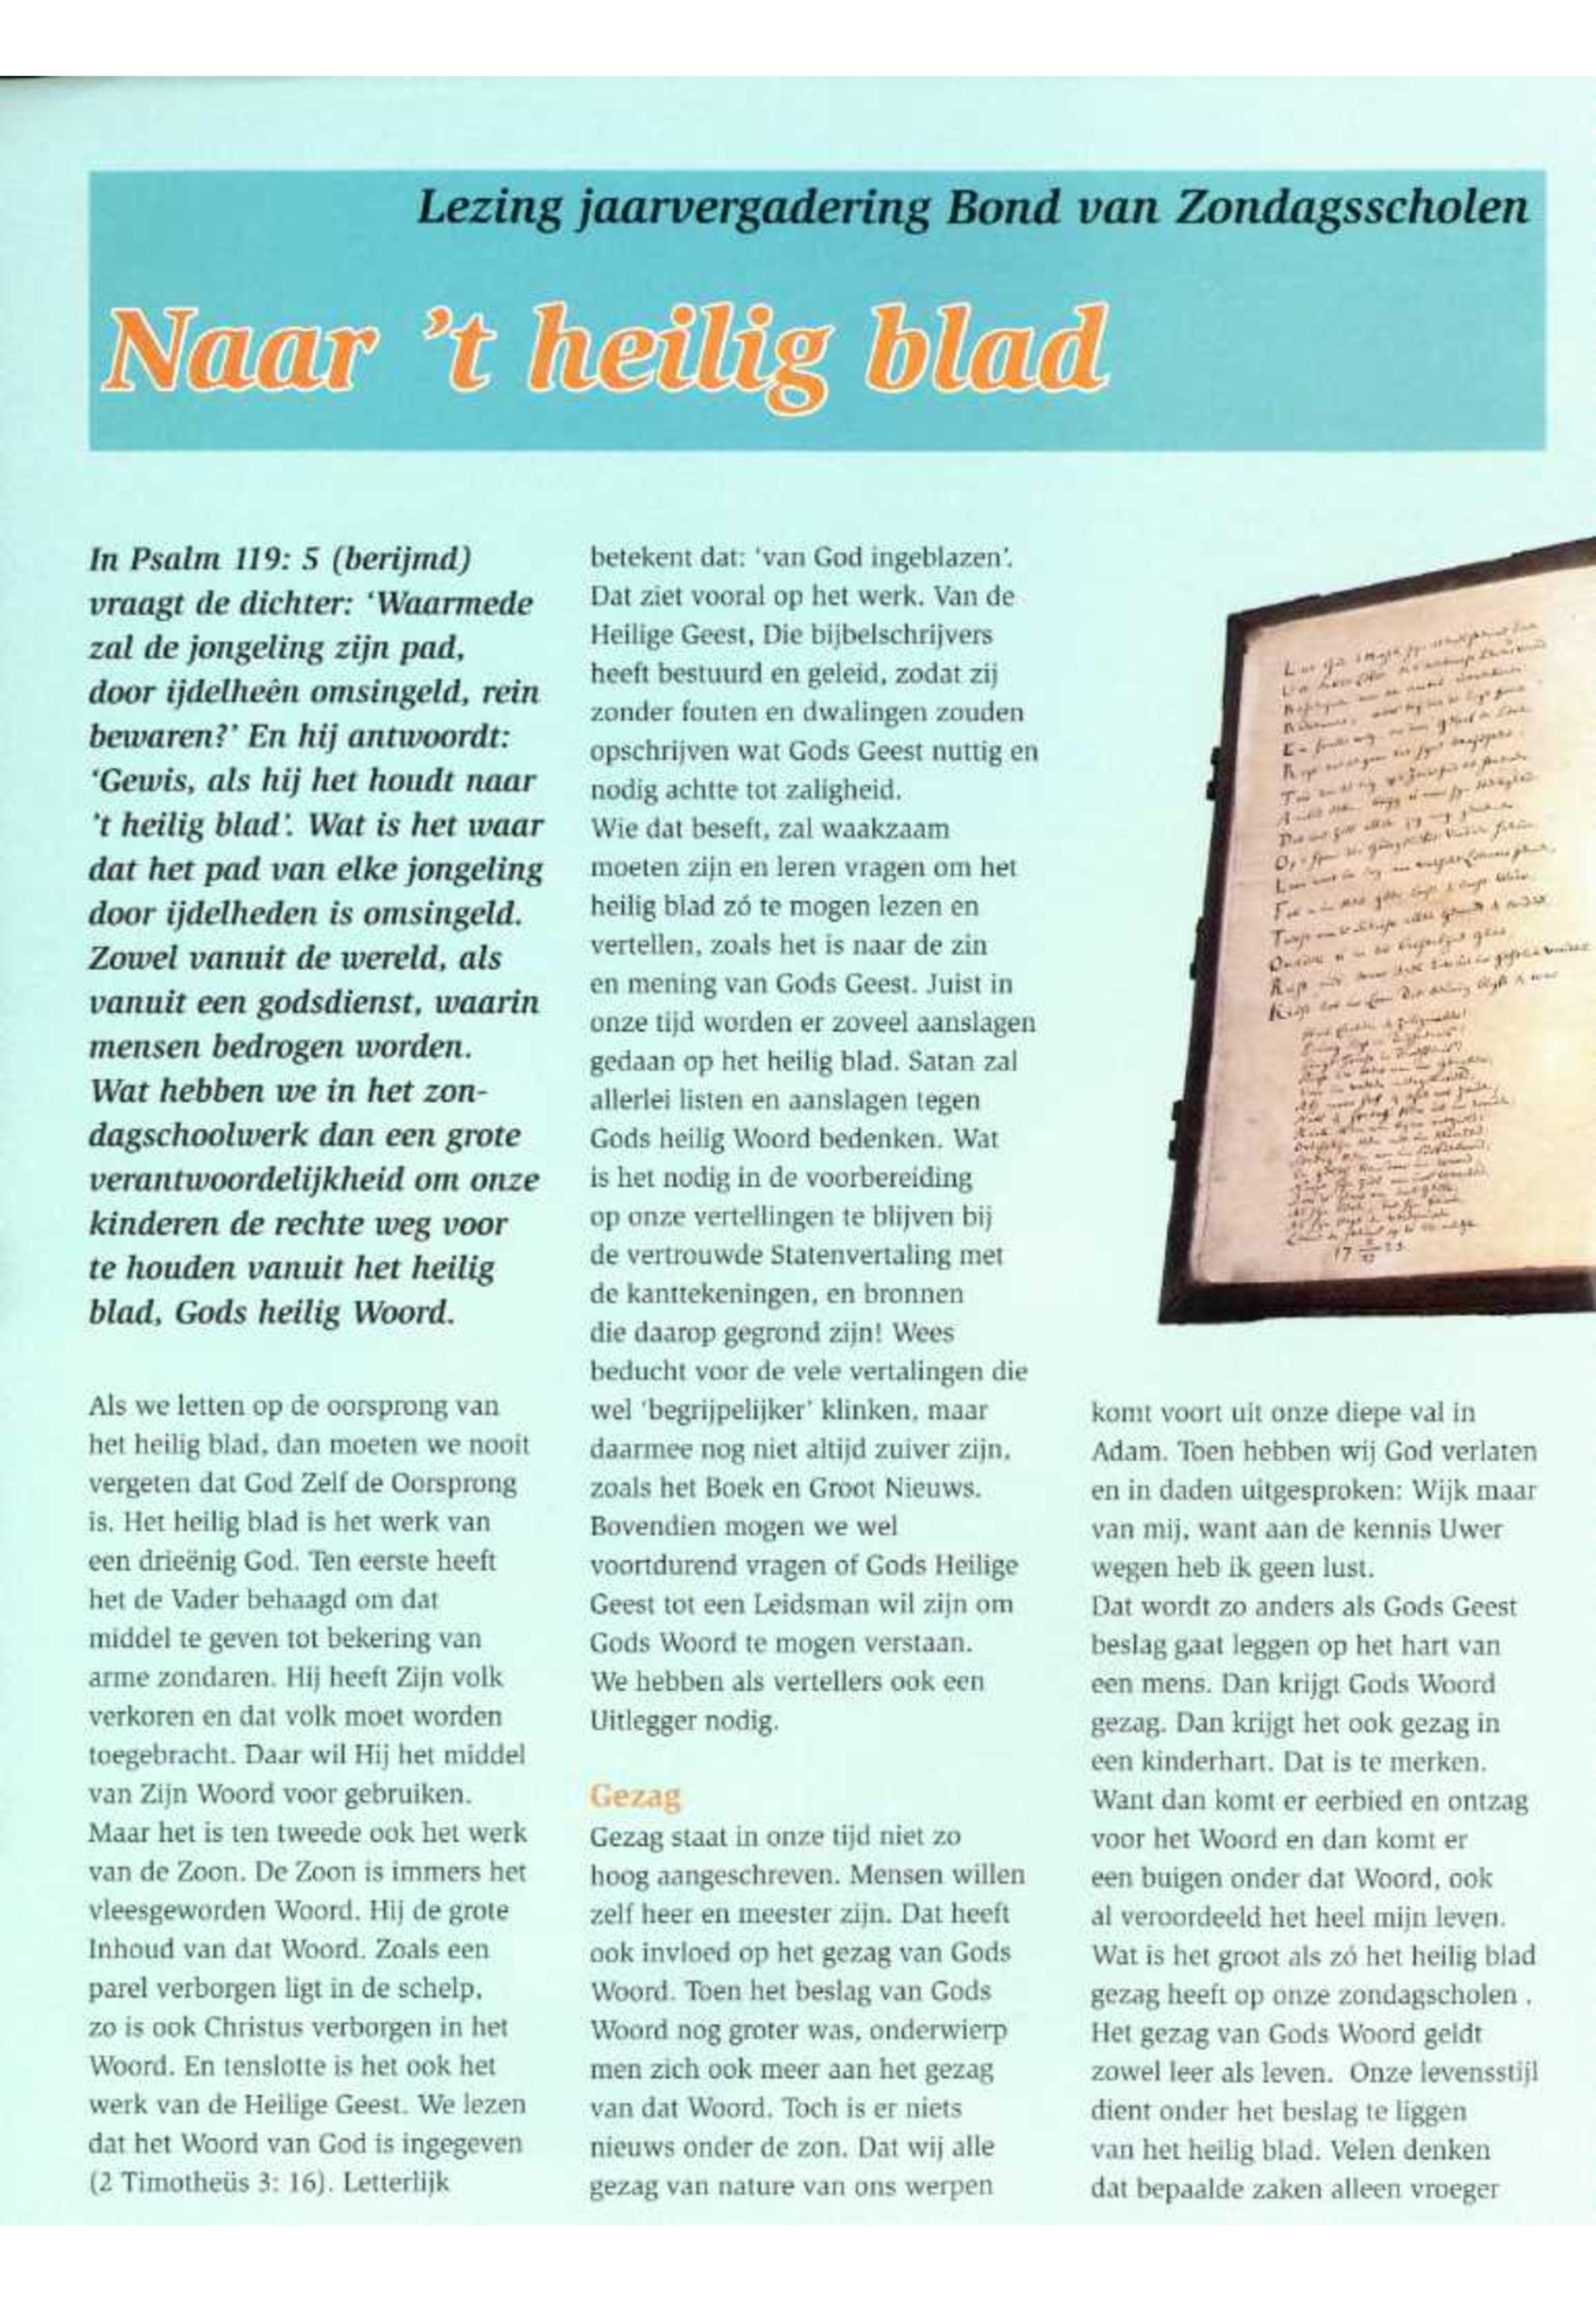 Lezing jaarvergadering Bond van Zondagsscholen
Naar 't heilig blad
In Psalm 119: 5 (berijmd)
vraagt de dichter: 'Waarmede
zal de jongeling zijn pad,
door ijdelheên omsingeld, rein
bewaren?' En hij antwoordt:
'Gewis, als hij het houdt naar
't heilig blad'. Wat is het waar
dat het pad van elke jongeling
door ijdelheden is omsingeld.
Zowel vanuit de wereld, als
vanuit een godsdienst, waarin
mensen bedrogen worden.
Wat hebben we in het zon-
dagschoolwerk dan een grote
verantwoordelijkheid om onze
kinderen de rechte weg voor
te houden vanuit het heilig
blad, Gods heilig Woord.
Als we letten op de oorsprong van
het heilig blad, dan moeten we nooit
vergeten dat God Zelf de Oorsprong
is. Het heilig blad is het werk van
een drieënig God. Ten eerste heeft
het de Vader behaagd om dat
middel te geven tot bekering van
arme zondaren. Hij heeft Zijn volk
verkoren en dat volk moet worden
toegebracht. Daar wil Hij het middel
van Zijn Woord voor gebruiken.
Maar het is ten tweede ook het werk
van de Zoon. De Zoon is immers het
vleesgeworden Woord. Hij de grote
Inhoud van dat Woord. Zoals een
parel verborgen ligt in de schelp,
zo is ook Christus verborgen in het
Woord. En tenslotte is het ook het
werk van de Heilige Geest. We lezen
dat het Woord van God is ingegeven
(2 Timotheüs 3: 16). Letterlijk
betekent dat: 'van God ingeblazen'.
Dat ziet vooral op het werk. Van de
Heilige Geest, Die bijbelschrijvers
heeft bestuurd en geleid, zodat zij
zonder fouten en dwalingen zouden
opschrijven wat Gods Geest nuttig en
nodig achtte tot zaligheid.
Wie dat beseft, zal waakzaam
moeten zijn en leren vragen om het
heilig blad zó te mogen lezen en
vertellen, zoals het is naar de zin
en mening van Gods Geest. Juist in
onze tijd worden er zoveel aanslagen
gedaan op het heilig blad. Satan zal
allerlei listen en aanslagen tegen
Gods heilig Woord bedenken. Wat
is het nodig in de voorbereiding
op onze vertellingen te blijven bij
de vertrouwde Statenvertaling met
de kanttekeningen, en bronnen
die daarop gegrond zijn! Wees
beducht voor de vele vertalingen die
wel 'begrijpelijker' klinken, maar
daarmee nog niet altijd zuiver zijn,
zoals het Boek en Groot Nieuws.
Bovendien mogen we wel
voortdurend vragen of Gods Heilige
Geest tot een Leidsman wil zijn om
Gods Woord te mogen verstaan.
We hebben als vertellers ook een
Uitlegger nodig.
Gezag
Gezag staat in onze tijd niet zo
hoog aangeschreven. Mensen willen
zelf heer en meester zijn. Dat heeft
ook invloed op het gezag van Gods
Woord. Toen het beslag van Gods
Woord nog groter was, onderwierp
men zich ook meer aan het gezag
van dat Woord. Toch is er niets
nieuws onder de zon. Dat wij alle
gezag van nature van ons werpen
komt voort uit onze diepe val in
Adam. Toen hebben wij God verlaten
en in daden uitgesproken: Wijk maar
van mij, want aan de kennis Uwer
wegen heb ik geen lust.
Dat wordt zo anders als Gods Geest
beslag gaat leggen op het hart van
een mens. Dan krijgt Gods Woord
gezag. Dan krijgt het ook gezag in
een kinderhart. Dat is te merken.
Want dan komt er eerbied en ontzag
voor het Woord en dan komt er
een buigen onder dat Woord, ook
al veroordeeld het heel mijn leven.
Wat is het groot als zó het heilig blad
gezag heeft op onze zondagscholen .
Het gezag van Gods Woord geldt
zowel leer als leven. Onze levensstijl
dient onder het beslag te liggen
van het heilig blad. Velen denken
dat bepaalde zaken alleen vroeger